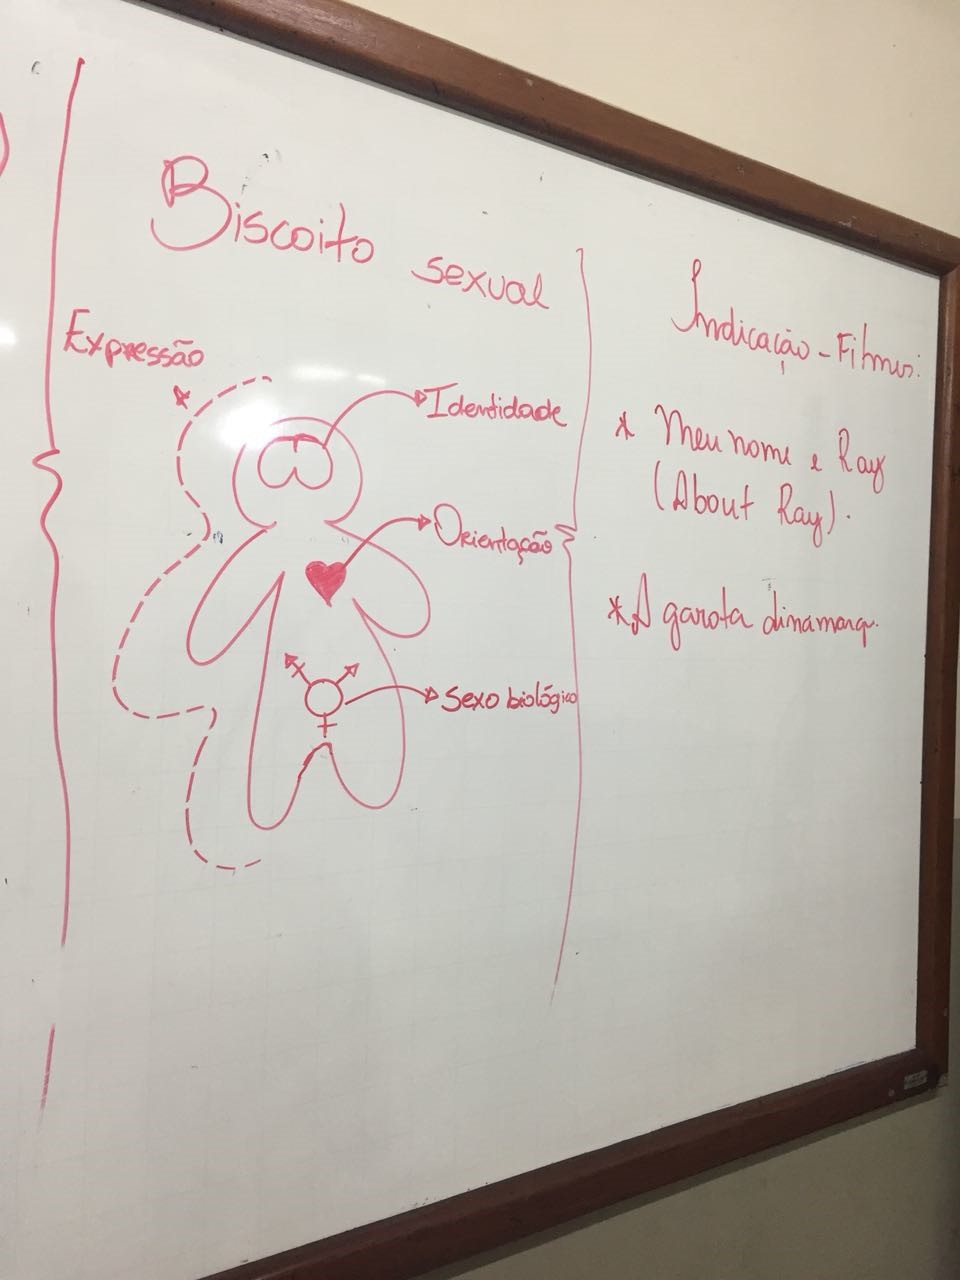 Biscoito sexual
Expressão
Identidade
Orientação
Sexo biológico
Indicação - Filmes:
* Meu nome e Ray
(About Ray).
* A garota dinamarq.